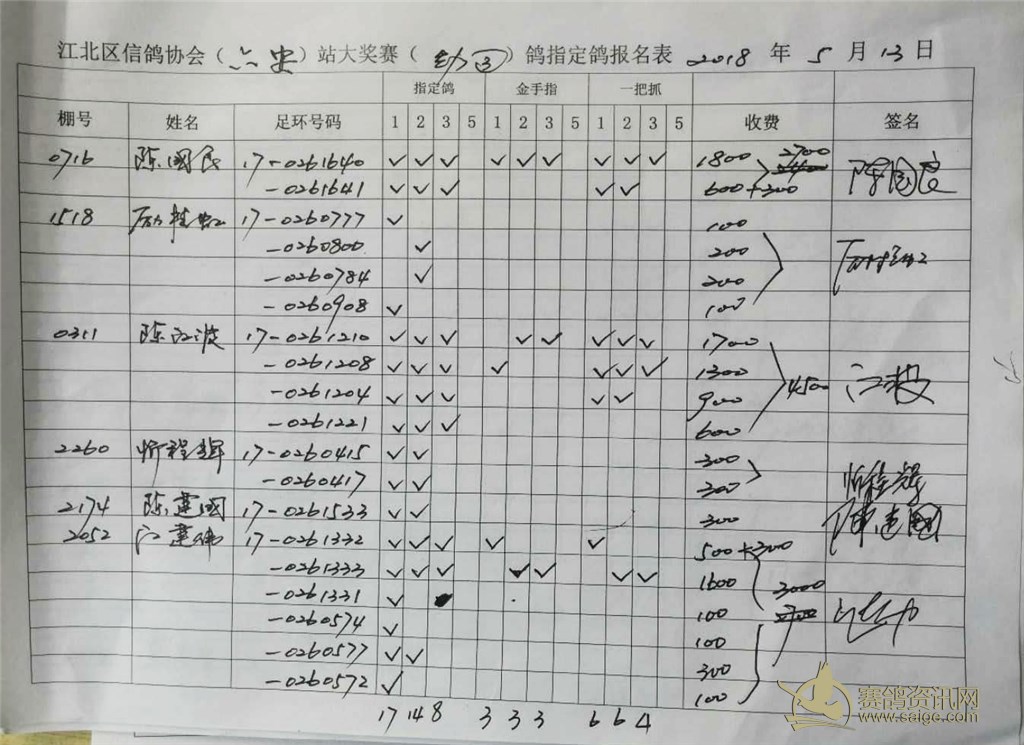 江北区信鸽协会（六安）站大奖赛（幼鸽）鸽指定鸽报名表 2018 年 5 月 13 日
指定鸽 金手指 一把抓
棚号 姓名 足环号码 1 2 3 5 1 2 3 5 1 2 3 5 收费 签名
0716 陈國良 17-0261640 ✓ ✓ ✓ ✓ ✓ ✓ ✓ ✓ ✓ 1800 2700 陈国良
-0261641 ✓ ✓ ✓ ✓ ✓ 600+300
1518 17-0260777 ✓ 100
-0260800 ✓ 200
-0260784 ✓ 200
-0260908 ✓ 100
0311 陈江波 17-0261210 ✓ ✓ ✓ ✓ ✓ ✓ ✓ ✓ 1700
-0261208 ✓ ✓ ✓ ✓ ✓ ✓ ✓ 1300 4500 江波
-0261204 ✓ ✓ ✓ ✓ ✓ 900
-0261221 ✓ ✓ ✓ 600
2260 忻程辉 17-0260415 ✓ ✓ 300
-0260417 ✓ ✓ 300
2174 陈建國 17-0261533 ✓ ✓ 300 陈建国
2052 江建 17-0261332 ✓ ✓ ✓ ✓ ✓ 500+300
-0261333 ✓ ✓ ✓ ✓ ✓ ✓ ✓ 1600 3000
-0261331 ✓ 100
-0260574 ✓ 100
-0260577 ✓ ✓ 300
-0260572 ✓ 100
17 14 8 3 3 3 6 6 4
赛鸽资讯网
www.saige.com